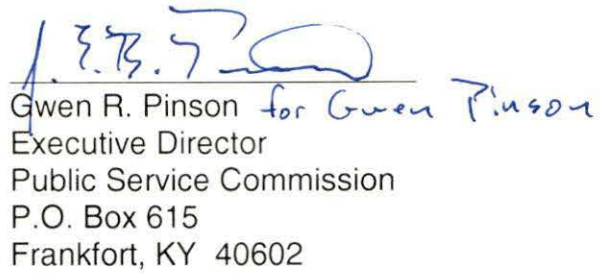 Gwen R. Pinson for Gwen Pinson
Executive Director
Public Service Commission
P.O. Box 615
Frankfort, KY 40602